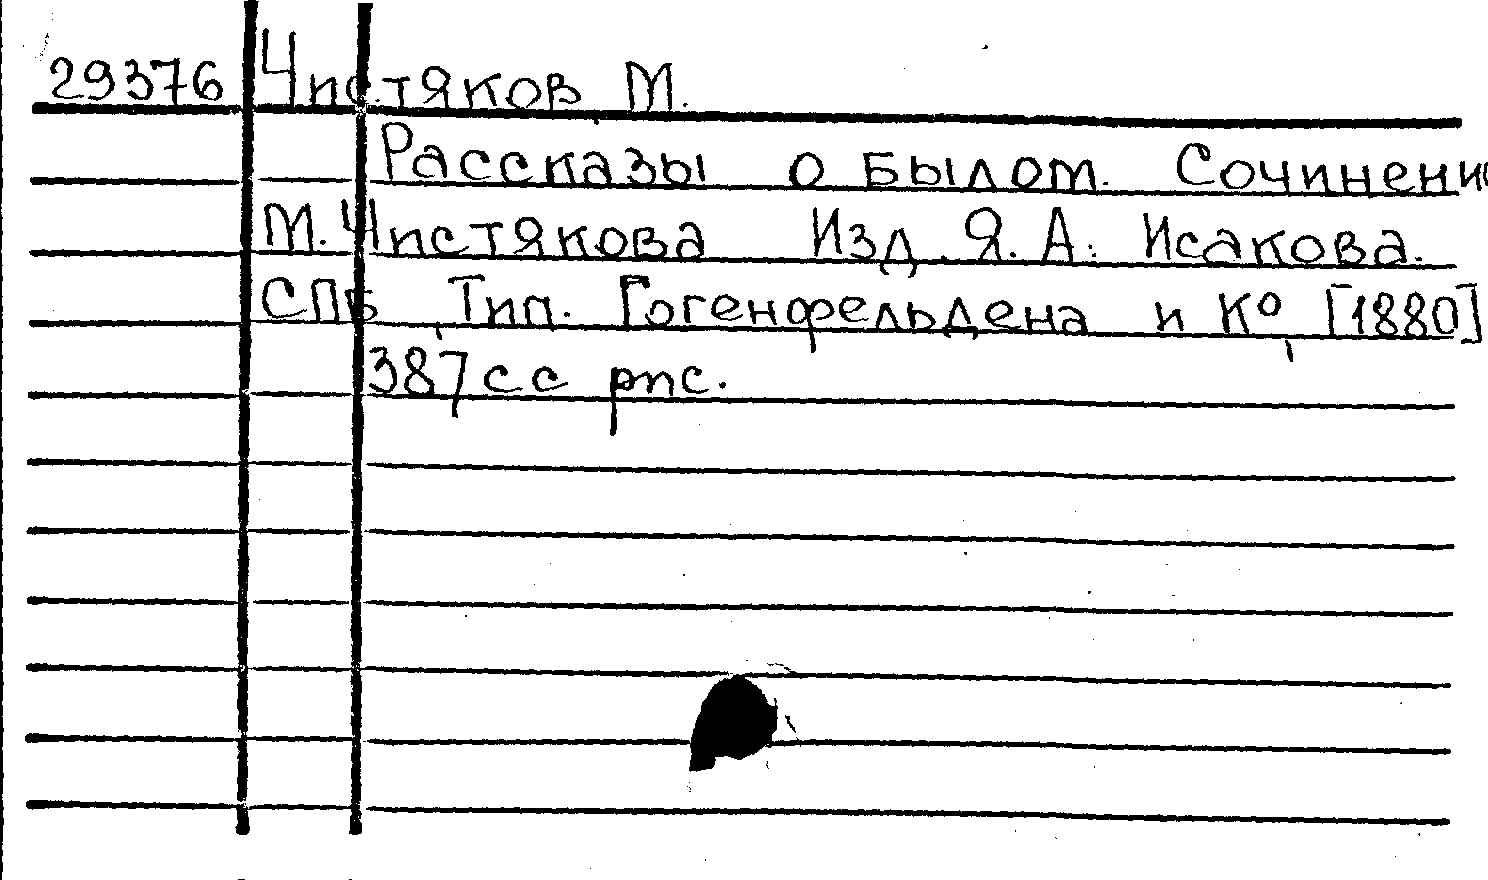 29376 Чистяков М.
Рассказы о былом. Сочинени
М. Чистякова Изд. Я. А. Исакова.
СПб, Тип. Гогенфельдена и К°, [1880]
387 сс рпс.